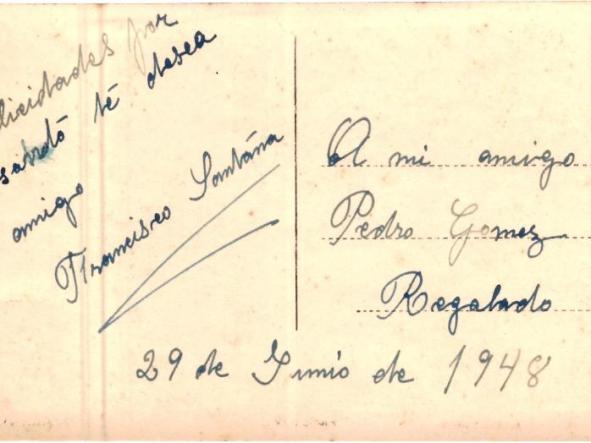 licidades por
santo te desea
amigo
Francisco Santána
A mi amigo
Pedro Gomez
Regalado
29 de Junio de 1948